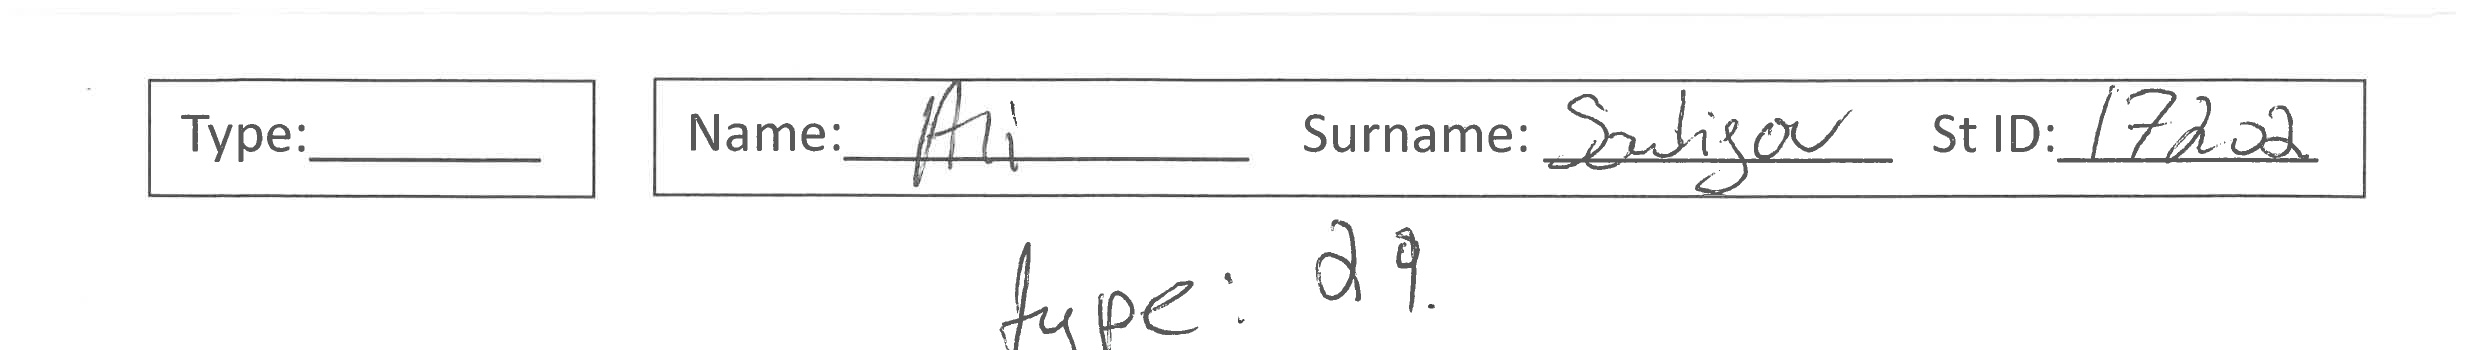 Type:_______ Name: Ali Surname: St ID: 17202
type: 29.